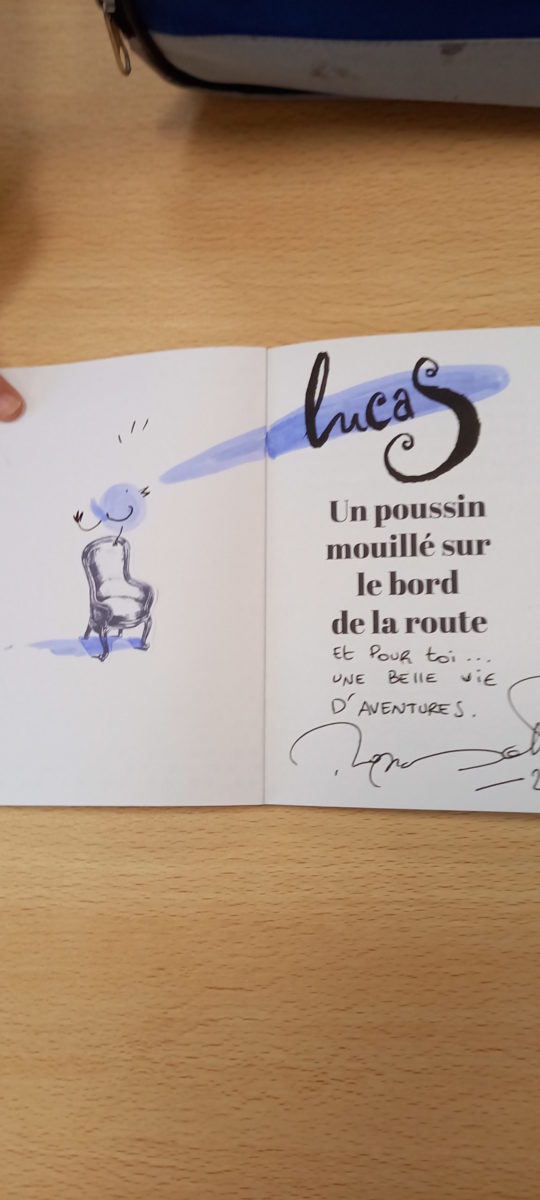 lucaS
Un poussin
mouillé sur
le bord
de la route
Et POUR toi...
UNE BEllE viE
D'AVENTURES.